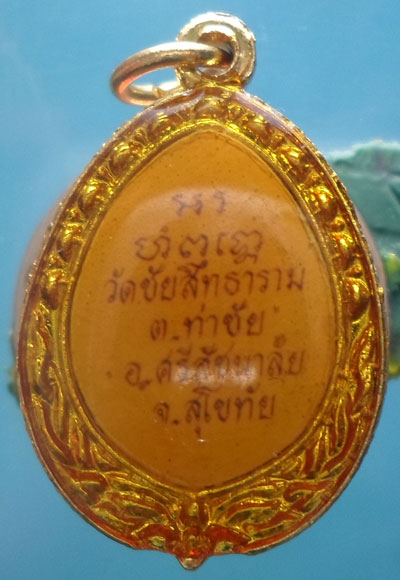 วัดชัยสิทธาราม
ต.ท่าชัย
อ.ศรีสัชนาลัย
จ.สุโขทัย